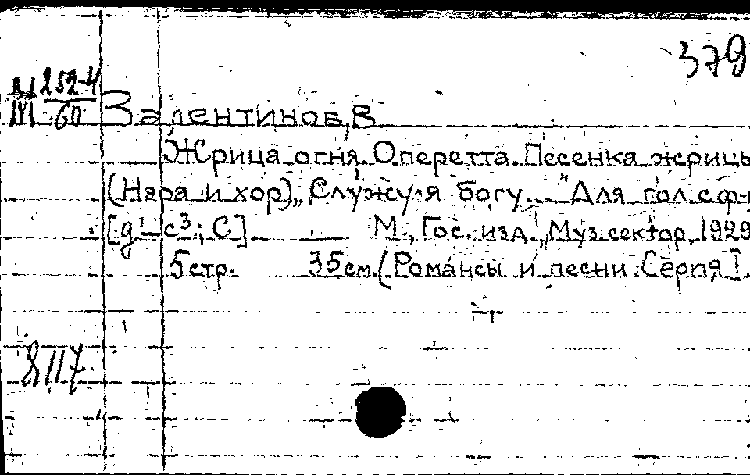 379
М 252-4
60
Валентинов, В.
Жрица огня. Оперетта. Песенка жрицы
(Нара и хор) „Служу я богу..." Для гол. с ф-
[g¹-c³; C] М., Гос. изд., Муз. сектор, 1929
5 стр. 35 см. (Романсы и песни. Серия I.
8117